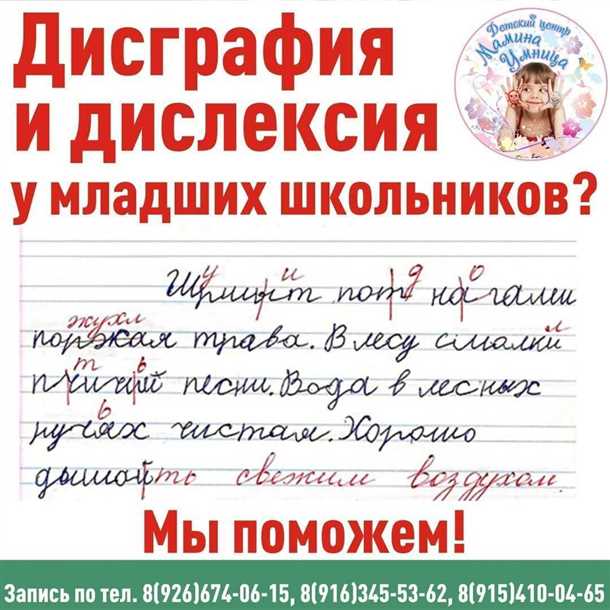 Дисграфия
и дислексия
у младших школьников?
Детский центр
Мамина
Умница
у и д о
Шрминт пот нагами
жухл
поржая трава. В лесу смолки
л
т ь
пчичий песни. Вода в лесных
ь
ручях чистая. Хорошо
дышать свежим воздухом.
Мы поможем!
Запись по тел. 8(926)674-06-15, 8(916)345-53-62, 8(915)410-04-65